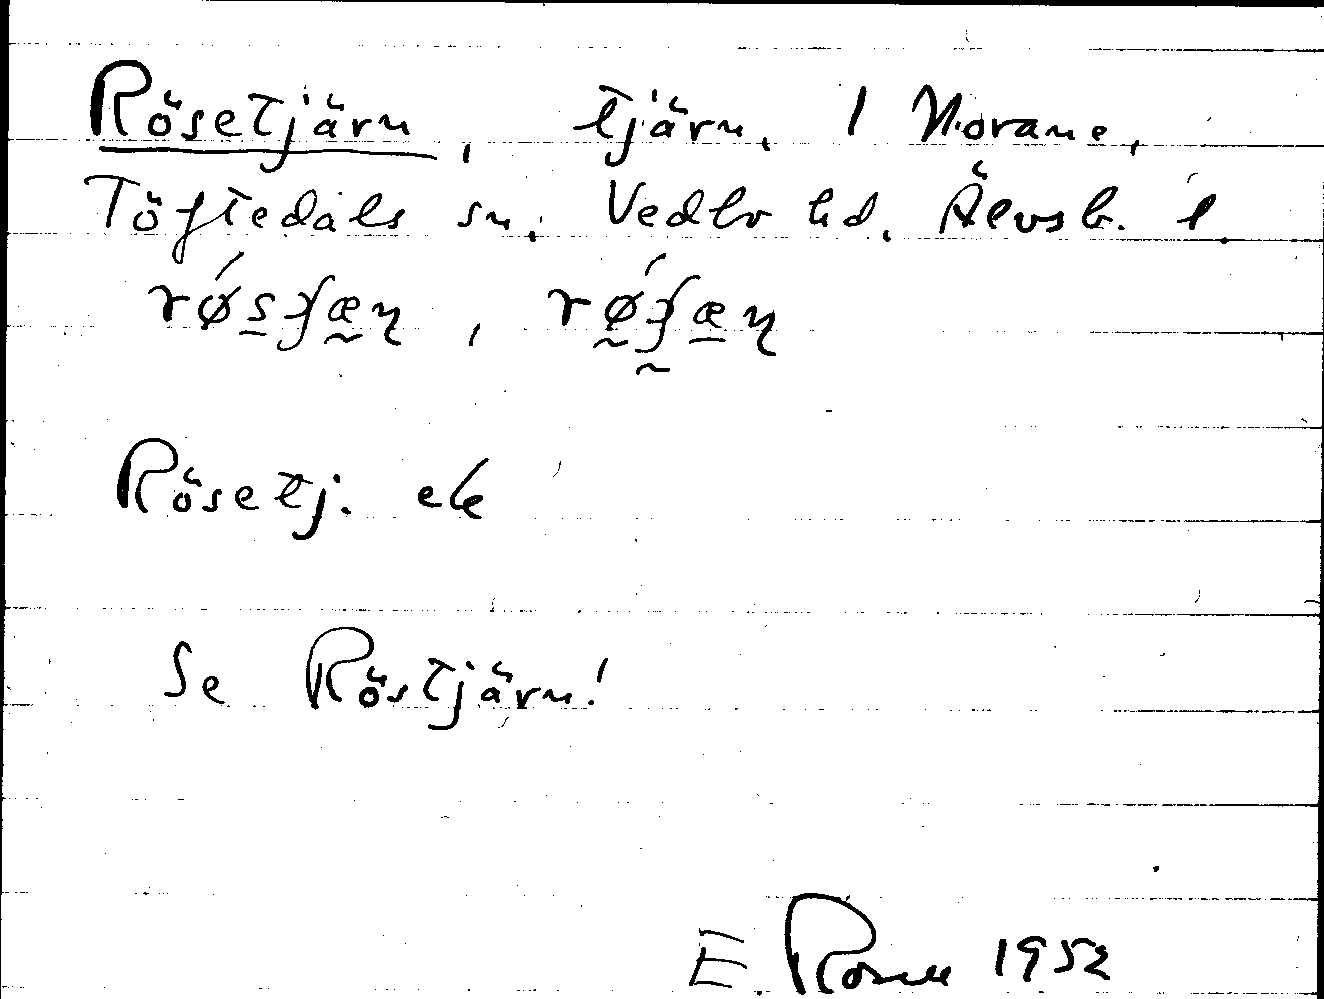 Rösetjärn, tjärn, 1 Morane,
Töftedals sn, Vedbo hd, Älvsb. l.
Rösetj. ek
Se Röstjärn!
E. Rosell 1952